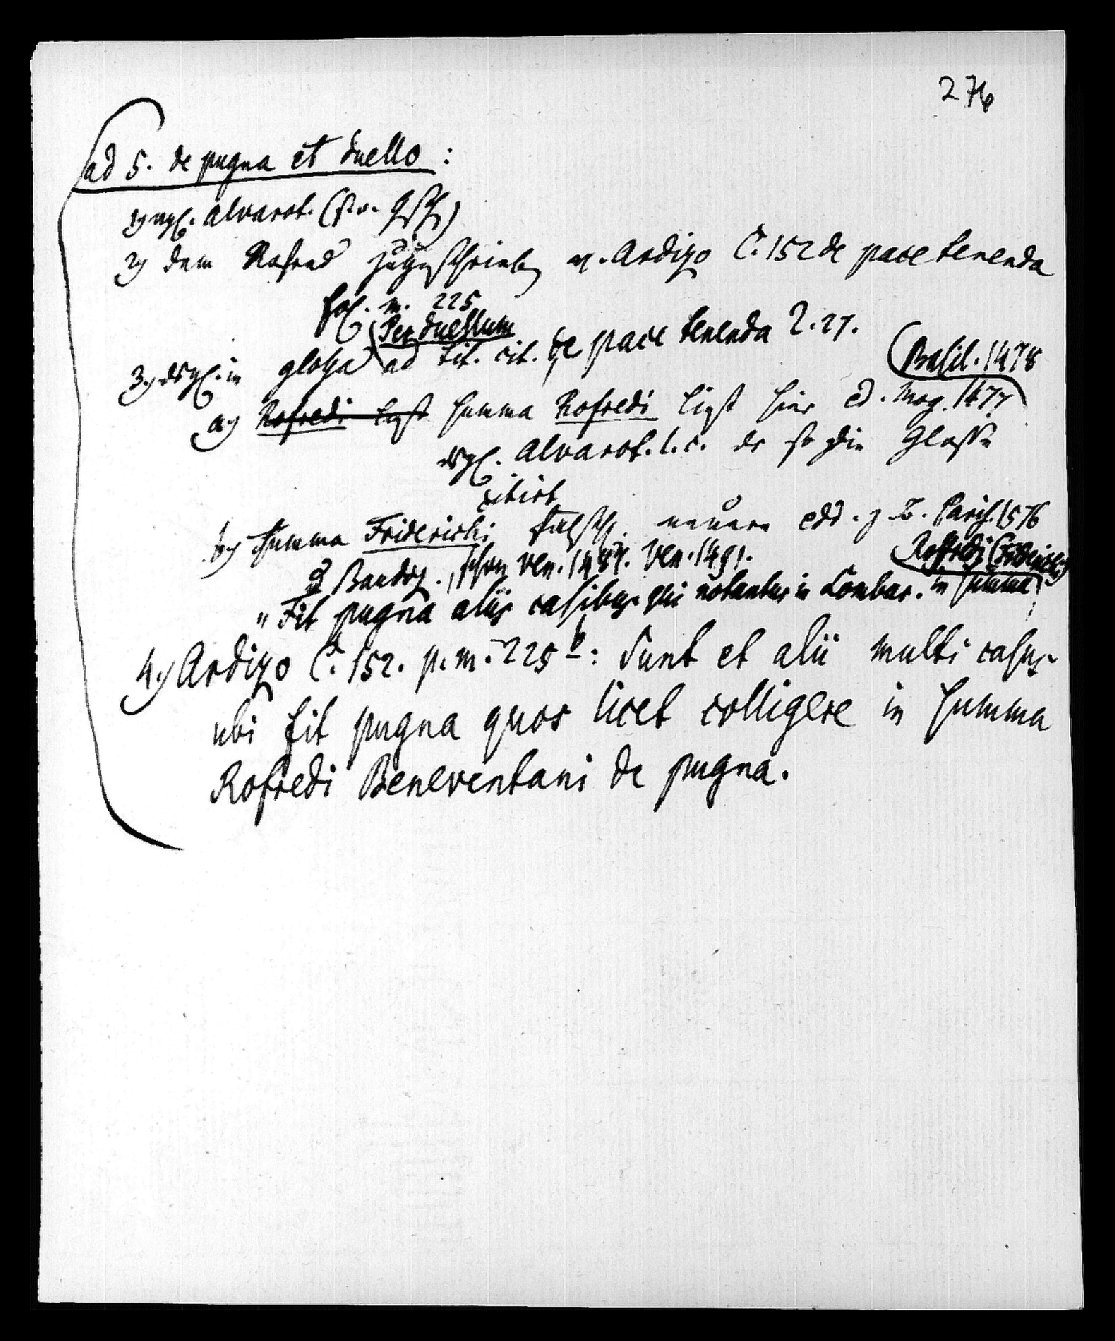 276
ad 5. de pugna et duello :
1) vgl. Alvarot.
2) dem Rofred zugeschrieben v. Ardizo C. 152 de pace tenenda
fol. m. 225
Per duellum
3) desgl. in glossa ad tit. cit. de pace tenenda 2. 27.
Basil. 1478
a) Rofredi liest summa Rofredi liest hier ed. Mog. 1477
desgl. Alvarot. l. c. der so die Glosse
citirt
b) summa Friderichi falsch neuere edd. z. B. Paris. 1576
Baudoz. schon Ven. 1489. Ven. 1491.
Roffredi (Friderichi)
"Fit pugna aliis casibus qui notantur in Lombar. in summa
4) Ardizo C. 152. p. m. 225 b: Sunt et alii multi casus
ubi fit pugna quos licet colligere in summa
Rofredi Beneventani de pugna.